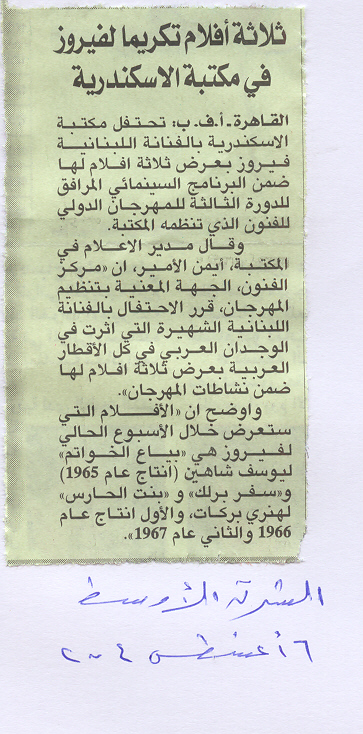 ثلاثة أفلام تكريما لفيروز
في مكتبة الاسكندرية
القاهرة - أ. ف. ب: تحتفل مكتبة
الاسكندرية بالفنانة اللبنانية
فيروز بعرض ثلاثة افلام لها
ضمن البرنامج السينمائي المرافق
للدورة الثالثة للمهرجان الدولي
للفنون الذي تنظمه المكتبة.
وقال مدير الاعلام في
المكتبة، أيمن الأمير، ان «مركز
الفنون، الجهة المعنية بتنظيم
المهرجان، قرر الاحتفال بالفنانة
اللبنانية الشهيرة التي اثرت في
الوجدان العربي في كل الأقطار
العربية بعرض ثلاثة افلام لها
ضمن نشاطات المهرجان».
واوضح ان «الأفلام التي
ستعرض خلال الأسبوع الحالي
لفيروز هي «بياع الخواتم»
ليوسف شاهين (انتاج عام 1965)
و«سفر برلك» و «بنت الحارس»
لهنري بركات، والأول انتاج عام
1966 والثاني عام 1967».
الشرق الأوسط
٦ أغسطس ٢٠٠٤